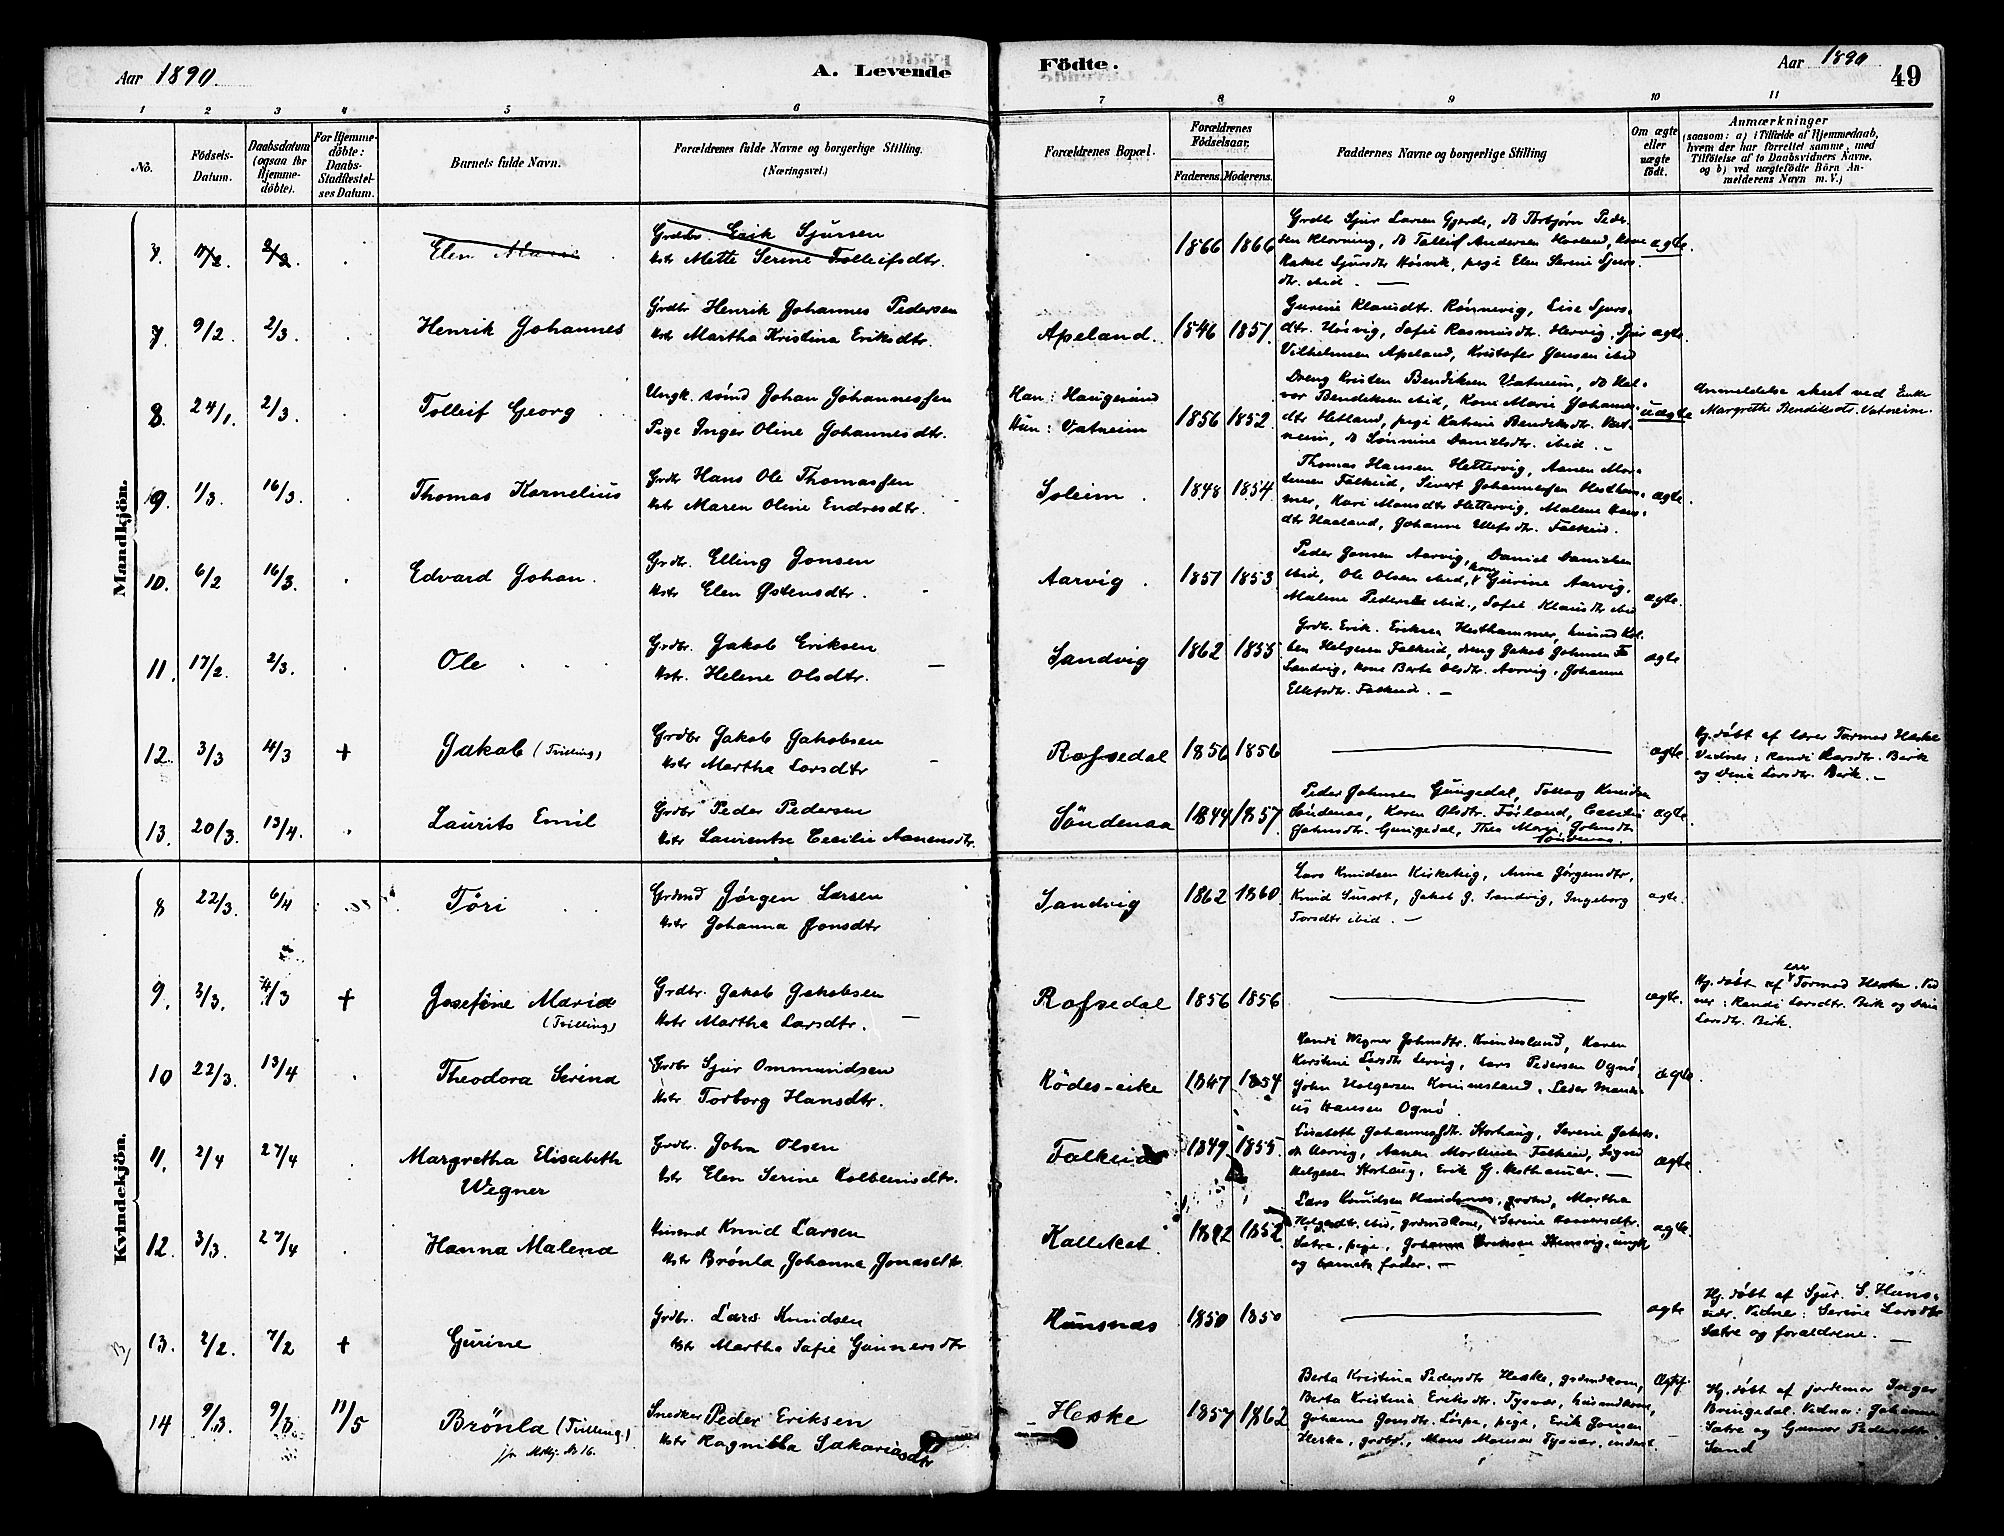 Aar 1890.
A. Levende
Födte.
Aar 1890
49
1 2 3 4 5 6 7 8 9 10 11
No.
Födsels-Datum.
Daabsdatum (ogsaa for Hjemmedöbte).
For Hjemmedöbte: Daabs-Stadfæstelses Datum.
Barnets fulde Navn.
Forældrenes fulde Navne og borgerlige Stilling. (Næringsvei.)
Forældrenes Bopæl.
Forældrenes Födselsaar.
Faderens. Moderens.
Faddernes Navne og borgerlige Stilling
Om ægte eller uægte födt.
Anmærkninger
(saasom: a) i Tilfælde af Hjemmedaab, hvem der har forrettet samme, med Tilföielse af to Daabsvidners Navne, og b) ved uægtefödte Börn Anmelderens Navn m. V.)
Mandkjön.
7. 11/2 2/3. Elen Marie
Grdbr. Erik Sjursen
Kstr Mette Serine Tolleifsdtr.
1866 1866
Grdbr Sjur Larsen Gjerde, do Torbjørn Peder-
sen Klovning, do Tolleif Andersen Haaland, kone
Rakel Sjursdtr Høsvik, pige Elen Serine Sjurs-
dtr. ibid. —
ægte.
7. 9/2 2/3. Henrik Johannes
Grdbr Henrik Johannes Pedersen
Kstr Martha Kristina Eriksdtr.
Apeland. 1846 1851.
Gurine Klausdtr. Rönnevig, Lise Sjurs-
dtr. Høsvig, Sofie Rasmusdtr. Hervig, Sjur
Vilhelmsen Apeland, Kristofer Jensen ibid
ægte.
8. 24/1. 2/3. Tolleif Georg
Ungk. Johan Johannessen
Pige Inger Oline Johannesdtr.
Han: Haugesund
Hun: Vatneim
1856 1852.
Dreng Kristen Bendiksen Vatneim, do Hal-
vor Bendiksen ibid, Kone Marie Johannes-
dtr Hetland, pige Katrine Bendiksdtr. Vat-
neim, do Sønnine Danielsdtr. ibid. —
uægte
Anmeldelse skeet ved Enke
Margrethe Bendiksdtr. Vatneim.
9. 1/3. 16/3. Thomas Kornelius
Grdbr Hans Ole Thomassen
Kstr Maren Oline Endresdtr.
Soleim. 1848 1854
Thomas Hansen Hettervig, Aanen Mor-
tensen Falkeid, Sivert Johannessen Hestham-
mer, Kari Monsdtr Hettervig, Malene Hans-
dtr Haaland, Johanne Ellefsdtr. Falkeid.
ægte.
10. 6/2 16/3. Edvard Johan.
Grdbr. Elling Jonsen
Kstr. Elen Østensdtr.
Aarvig. 1857 1853
Peder Jonsen Aarvig, Daniel Danielsen
ibid, Ole Olsen ibid, kone Gurine Aarvig,
Malene Pedersdtr ibid., Sofie Klausdtr ibid
ægte.
11. 17/2. 2/3. Ole
Grdbr. Jakob Eriksen
Kstr. Helene Olsdtr.
Sandvig 1862 1855
Grdbr. Erik Eriksen Hesthammer, husmd Kol-
ben Helgesen Falkeid, dreng Jakob Johnsen
Sandvig, kone Berte Olsdtr. Aarvig, Johanne
Ellefsdtr. Falkeid. —
ægte
12. 3/3 4/3 + Jakob (Tvilling)
Grdbr Jakob Jakobsen
Kstr Martha Larsdtr
Rafsedal 1856 1856
ægte
Hj. døbt af lærer Tormod Heske
Vidner: Randi Larsdtr. Birk
og Larsdtr. Birk. —
13. 20/3. 13/4. Laurits Emil
Grdbr Peder Pedersen
Kstr Laurentse Cecilie Aanensdtr.
Söndenaa 1844 1857.
Peder Johnsen Gungedal, Tollag Knudsen
Söndenaa, Karen Olsdtr. Førland, Cecilie
Johnsdtr. Gungedal, Thea Marie Johnsdtr
Söndenaa.
ægte.
Kvindekjön.
8 22/3. 6/4 Töri
Grdmd Jørgen Larsen
Kstr Johanna Jonsdtr
Sandvig 1862 1860
Lars Knudsen Kirketeig, Anne Jørgensdtr,
Knud Susort, Jakob J. Sandvig, Ingeborg
Torsdtr ibid. —
ægte.
9. 3/3. 4/3 + Josefine Marie
(Tvilling)
Grdbr. Jakob Jakobsen
Kstr Martha Larsdtr.
Rafsedal 1856 1856
ægte.
Hj. døbt af lærer Tormod Heske. Vid
ner: Randi Larsdtr. Birk og
Larsdtr. Birk.
10 22/3. 13/4 Theodora Serine
Grdbr Sjur Ommundsen
Kstr Torborg Hansdtr.
Rödes-eike 1847 1854
Wegner Johnsdtr. Kvindesland, Karen
Kerstine Larsdtr Lervig, Lars Pedersen Ognö,
John Holgersen Kvinnesland, Peder Mande-
us Hansen Ognö.
ægte
11. 2/4 27/4 Margretha Elisabeth
Wegner
Grdbr. John Olsen
Kstr Elen Serine Kolbeinsdtr.
Falkeid 1849 1855
Lisabeth Johannesdtr. Storhaug, Serine Jakobs-
dtr Aarvig, Aanen Mortensen Falkeid, Sigved
Helgesen Storhaug, Erik J. Hesthamer. —
ægte
12. 3/3. 27/4 Hanna Malene
Husmd Knud Larsen
Kstr Brönla Johanna Jonasdtr.
Kallekot. 1852
Lars Knudsen Hundsnes, grdmd, Martha
Helgesdtr. ibid, grdmdkone, Serine
Satre, pige, Johannes Eriksen Hensvig, ungk
og barnets fader. —
ægte
13. 2/2. 7/2 + Gurine
Grdbr. Lars Knudsen
Kstr Martha Sofie Gunnersdtr
Hunsnas 1850 1850
ægte
Hj. døbt af Sjur S. Huns-
Vidne: Serine Larsdtr
Satre og forældrene. —
14 9/3. 9/3 11/5 Brönla (Tvilling.)
jfr Mskj. No 16.
Snedker Peder Eriksen
Kstr Ragnilla Sakariasdtr
Heske 1857 1862
Berta Kristina Pedersdtr Heske, grdmdkone,
Berta Kristina Eriksdtr. Tysvær, husmdkone,
Johanna Jonsdtr. Liepe, pige, Erik Jonsen
Heske, grdbr., Mons Monsen Tysvær, inderst.
Ægte
Hj. døbt af jordemor Inger
Bringedal. Vidner: Johanne
Satre og Gunvor Pedersdtr
Sand